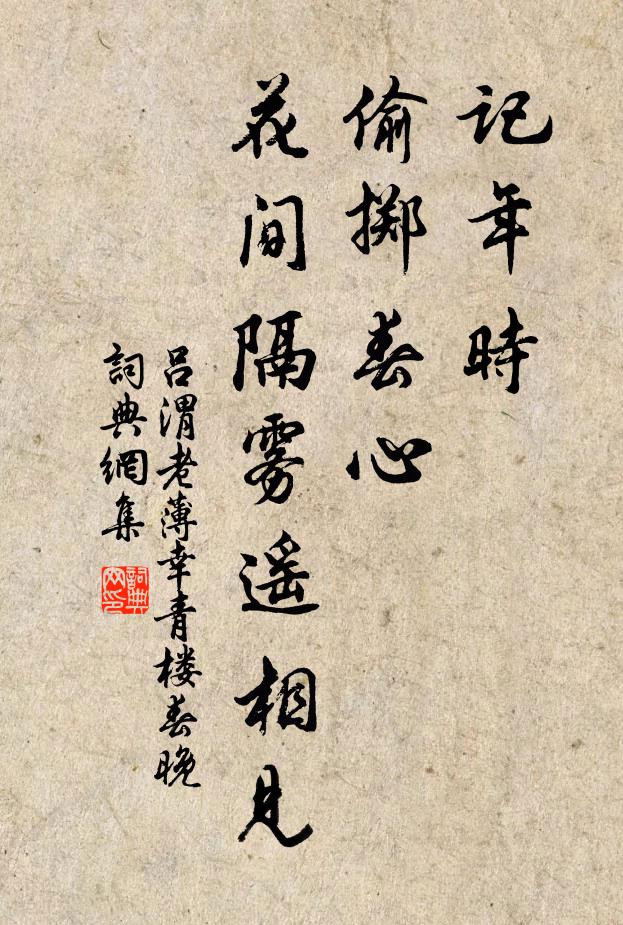 记年時
偷掷春心
花间隔雾遥相見
吕渭老薄幸青楼春晚
詞典網集
詞典
网印